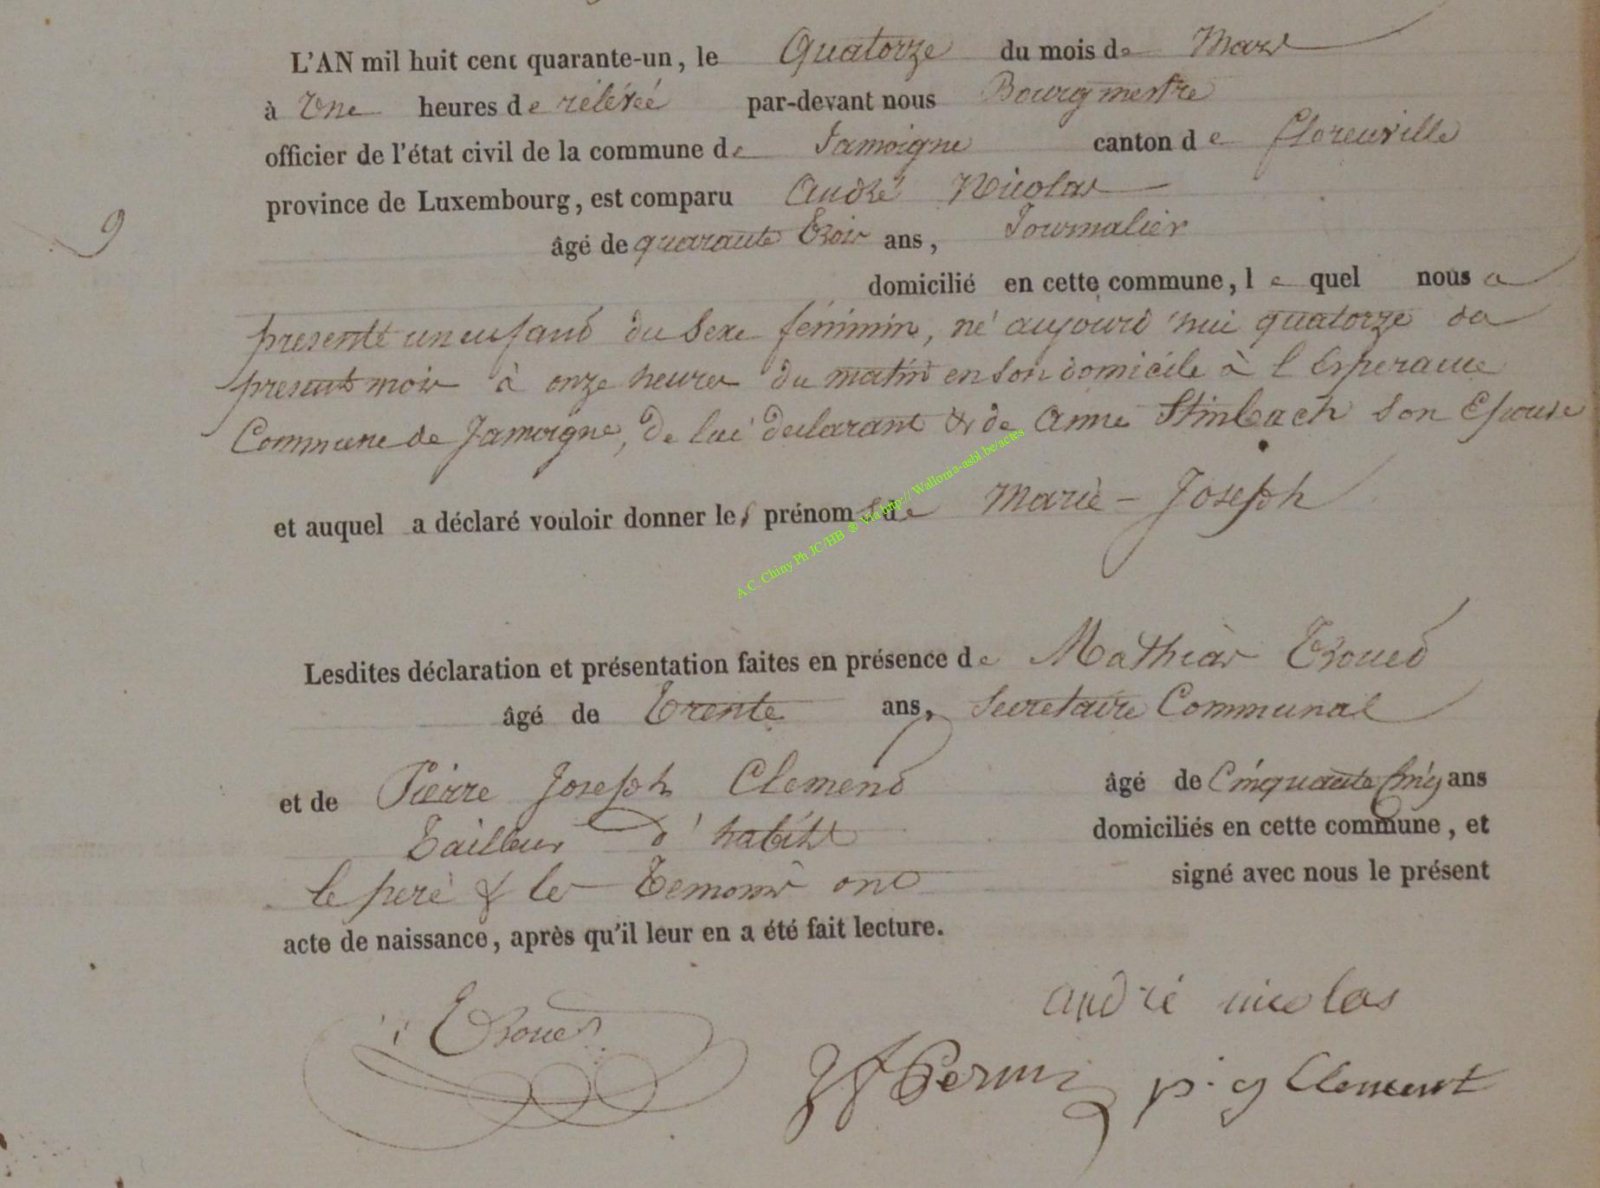 L'AN mil huit cent quarante-un, le Quatorze du mois de Mars
à Une heures de rélévéé par-devant nous Bourgmestre
officier de l'état civil de la commune de Jamoigne canton de Florenville
province de Luxembourg, est comparu André Nicolas
9
âgé de quarante trois ans, Journalier
domicilié en cette commune, le quel nous a
presenté un enfant du sexe féminin, né aujourd'hui quatorze du
present mois à onze heures du matin en son domicile à l'Esperance
Commune de Jamoigne, de lui declarant & de Anne Stinbach son Epouse
et auquel a déclaré vouloir donner les prénoms de Marie - Joseph
A.C. Chiny Ph JC/HB ® Via http:// Wallonia-asbl.be/actes
Lesdites déclaration et présentation faites en présence de Mathias
âgé de trente ans, Secretaire Communal
et de Pierre Joseph Clement âgé de Cinquante Cinq ans
Tailleur d'habits domiciliés en cette commune, et
le pere & les temoins ont signé avec nous le présent
acte de naissance, après qu'il leur en a été fait lecture.
andré nicolas
p. j Clement